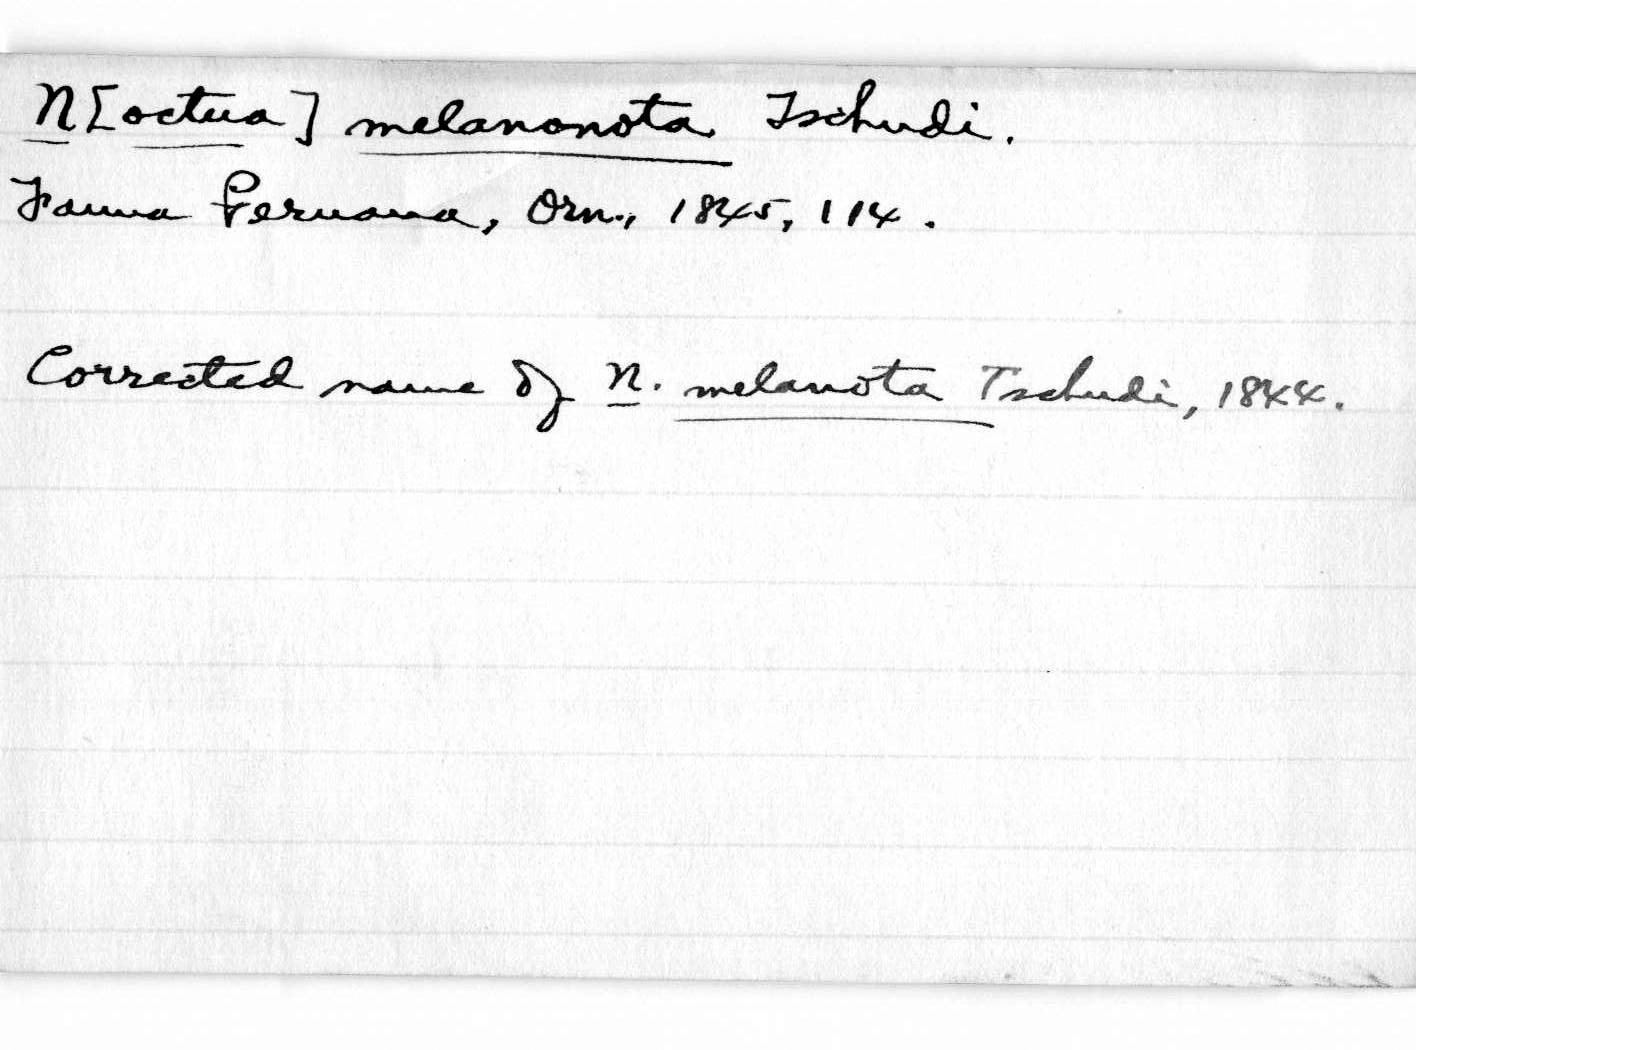 N[octua] melanonota Tschudi.
Fauna Peruana, Orn., 1845, 114.
Corrected name of N. melanota Tschudi, 1844.